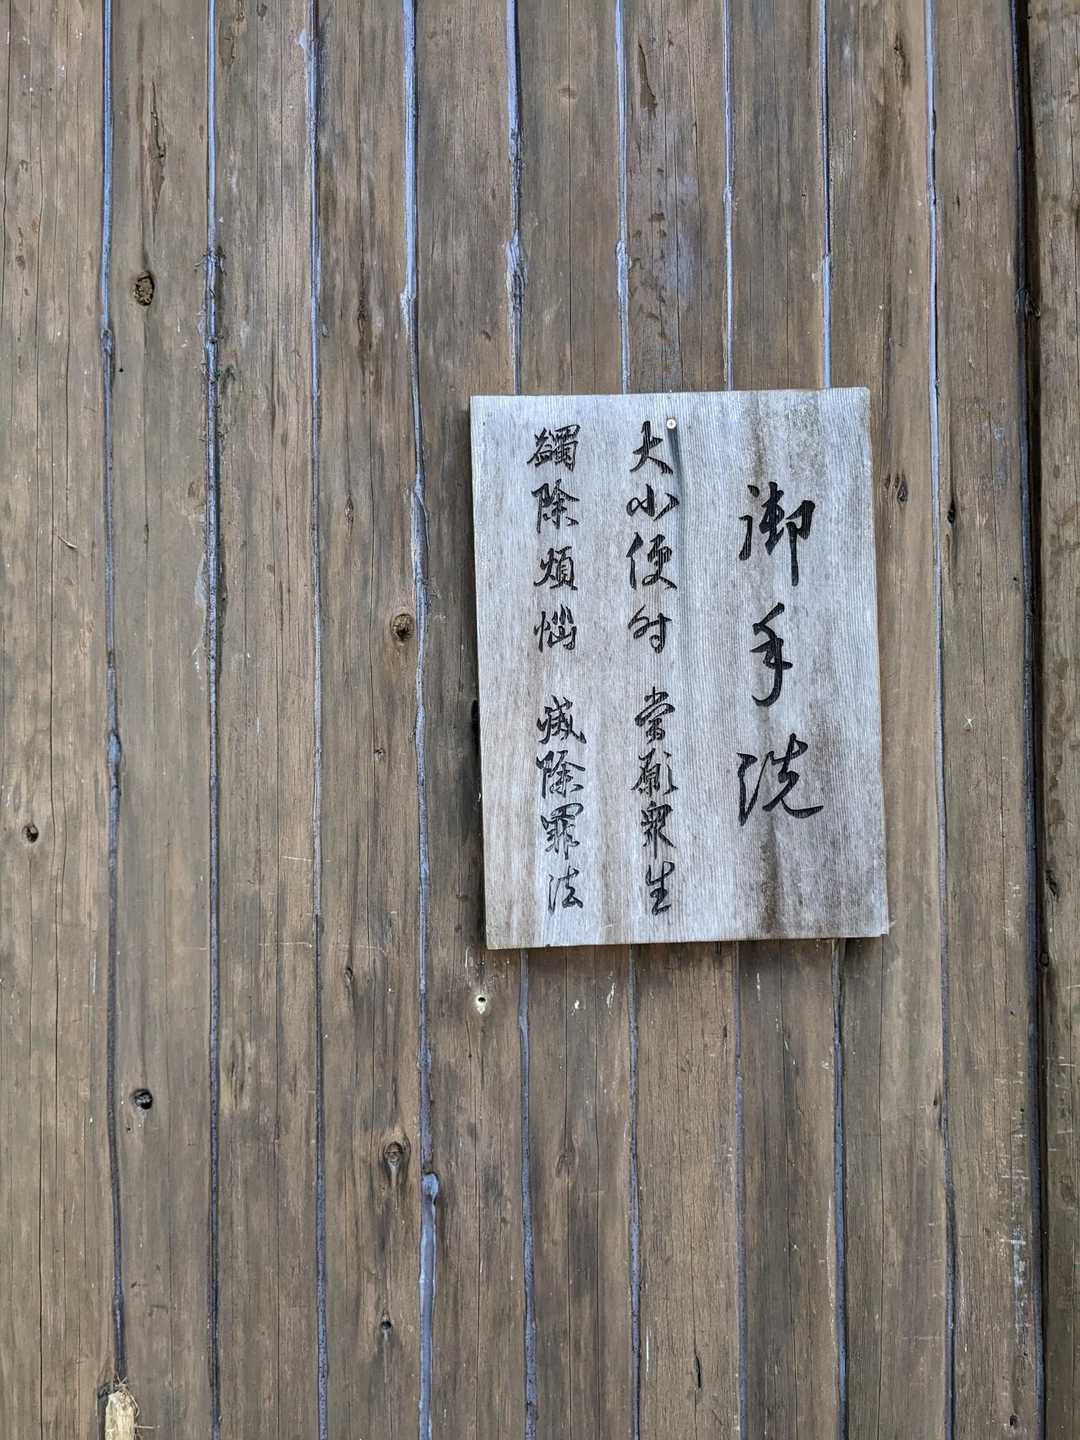 御手洗
大小便时 當願衆生
蠲除煩惱 滅除罪法